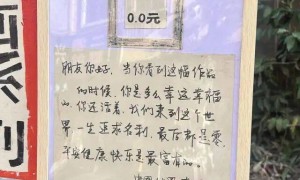 0.0元
朋友你好，当你看到这幅作品
的时候，你是多么幸运，幸福
的，你还活着，我们来到这个世
界，一生追求名利，最后都是零，
平安健康快乐是最富有的。